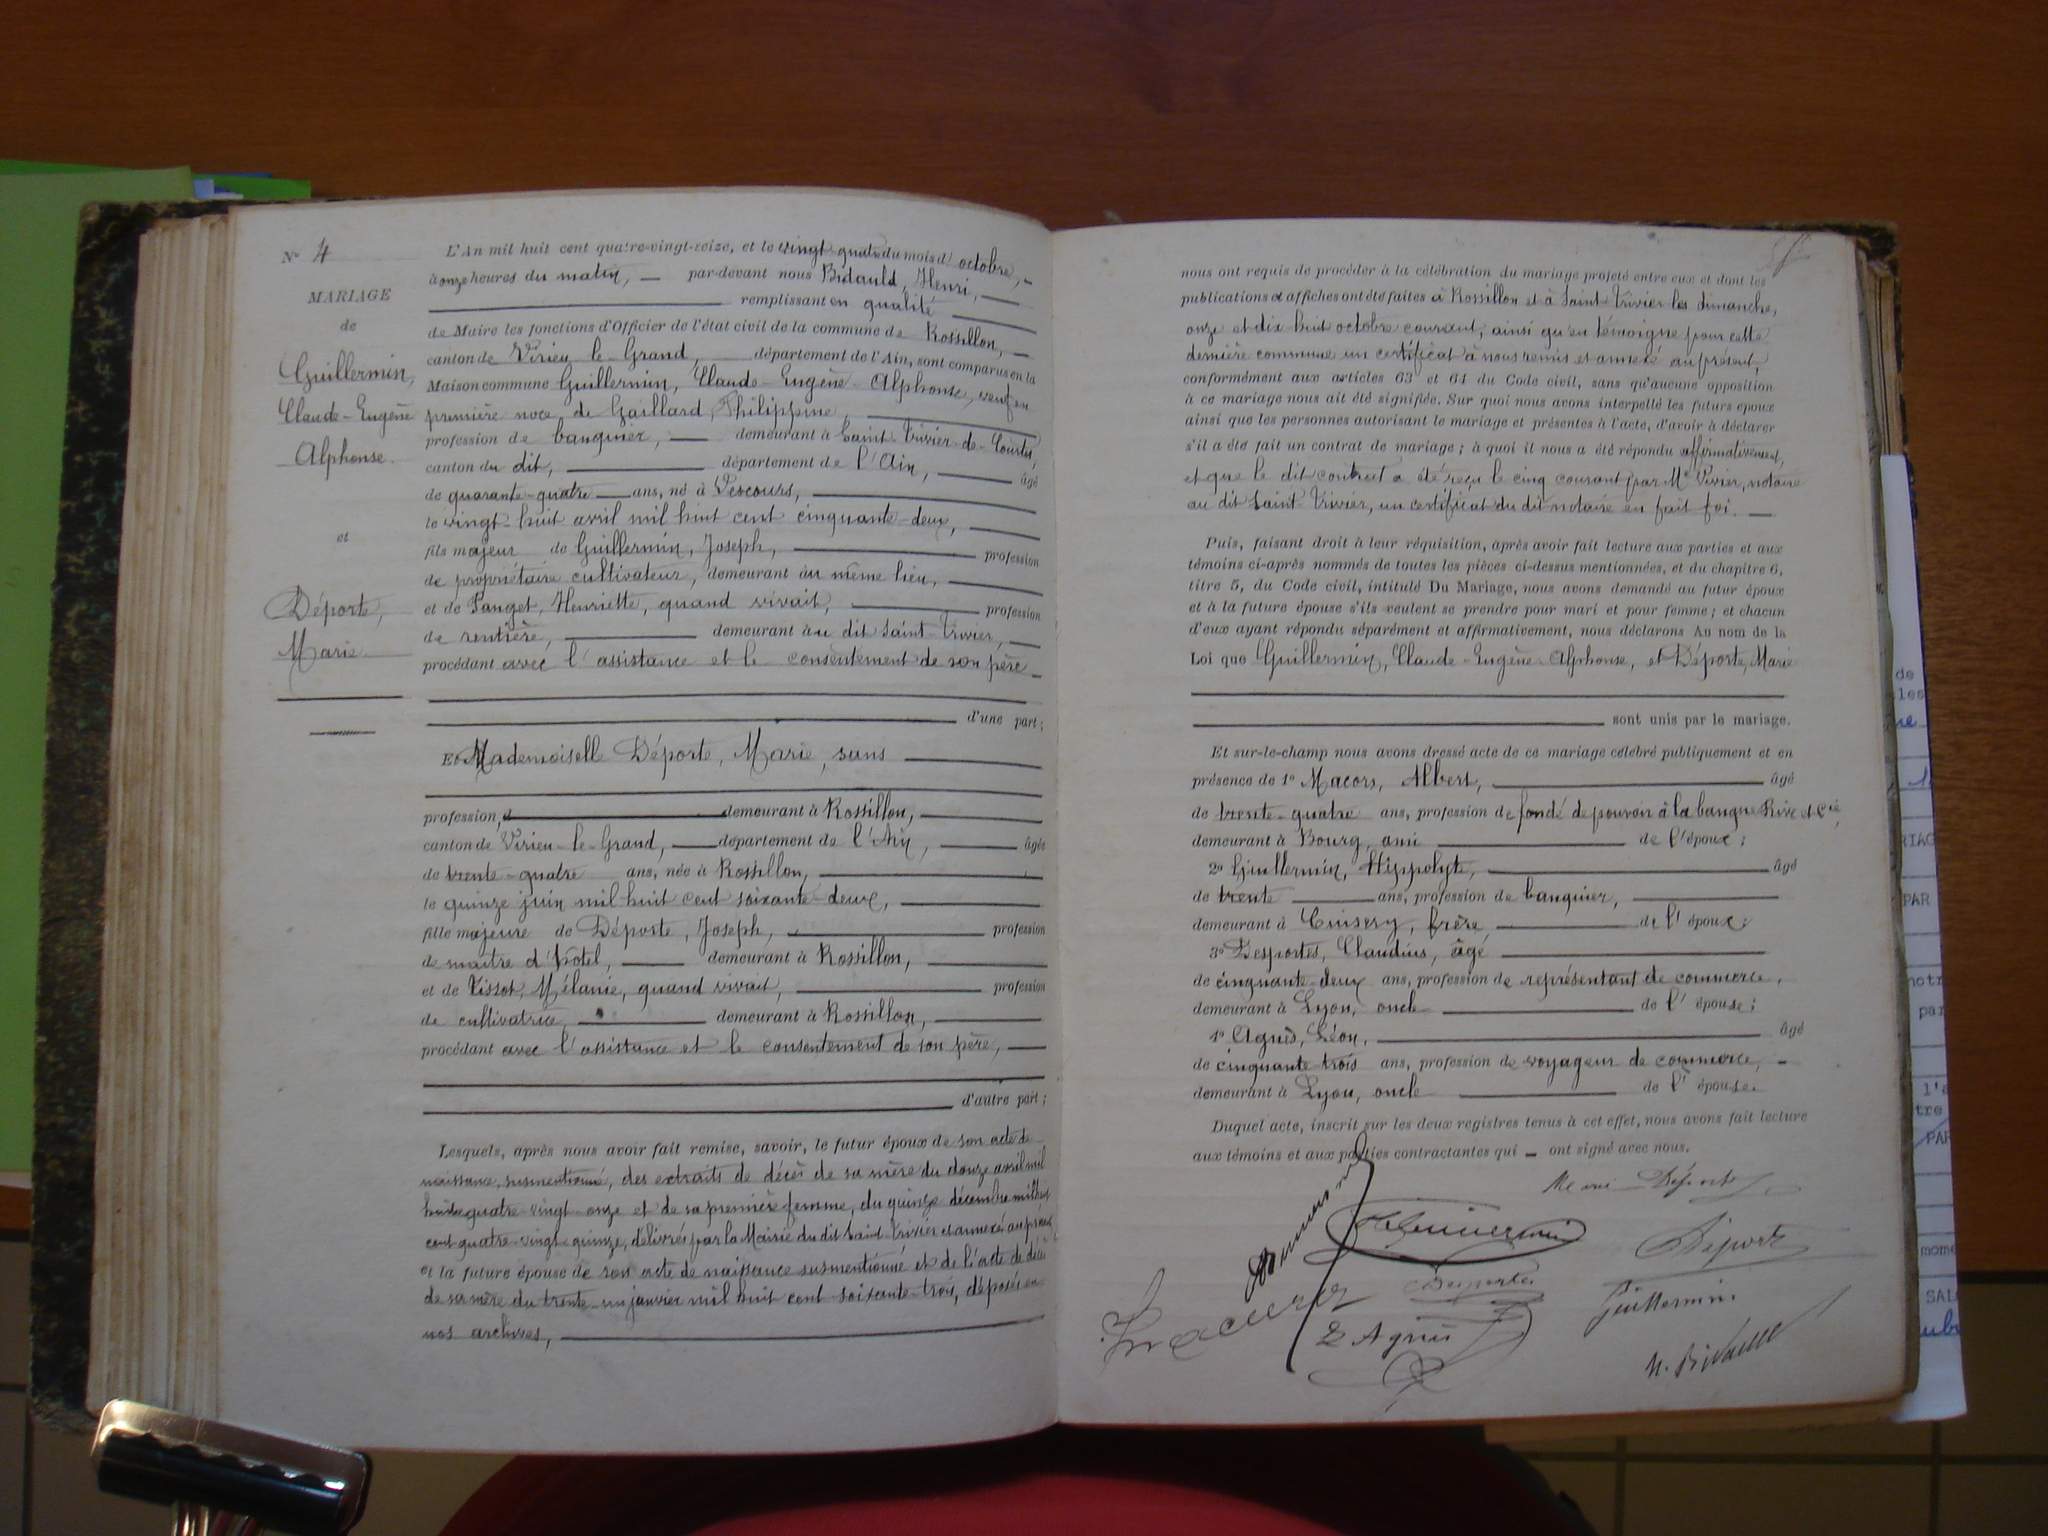 N° 4
MARIAGE
de
Guillermin,
Claude-Eugène
Alphonse.
et
Déporte,
Marie.
L'An mil huit cent quatre-vingt-seize, et le vingt-quatre du mois d'octobre,
à onze heures du matin, par-devant nous Bidauld, Henri,
remplissant en qualité
de Maire les fonctions d'Officier de l'état civil de la commune de Rossillon,
canton de Virieu-le-Grand, département de l'Ain, sont comparus en la
Maison commune Guillermin, Claude-Eugène-Alphonse, veuf en
première noce de Gaillard, Philippine,
profession de banquier, demeurant à Saint-Trivier-de-Courtes,
canton du dit, département de l'Ain, âgé
de quarante-quatre ans, né à Vescours,
le vingt-huit avril mil huit cent cinquante-deux,
fils majeur de Guillermin, Joseph, profession
de propriétaire cultivateur, demeurant au même lieu,
et de Panget, Henriette, quand vivait, profession
de rentière, demeurant au dit Saint-Trivier,
procédant avec l'assistance et le consentement de son père
d'une part;
Et Mademoiselle Déporte, Marie, sans
profession, demeurant à Rossillon,
canton de Virieu-le-Grand, département de l'Ain, âgée
de trente-quatre ans, née à Rossillon,
le quinze juin mil huit cent soixante-deux,
fille majeure de Déporte, Joseph, profession
de maître d'hôtel, demeurant à Rossillon,
et de Tissot, Mélanie, quand vivait, profession
de cultivatrice, demeurant à Rossillon,
procédant avec l'assistance et le consentement de son père,
d'autre part;
Lesquels, après nous avoir fait remise, savoir, le futur époux de son acte de
naissance susmentionné, des extraits de décès de sa mère du douze avril mil
huit cent quatre-vingt-onze et de sa première femme, du quinze décembre mil huit
cent quatre-vingt-quinze, délivrés par la Mairie du dit Saint-Trivier et annexés au présent
et la future épouse de son acte de naissance susmentionné et de l'acte de décès
de sa mère du trente-un janvier mil huit cent soixante-trois, déposés en
nos archives,
nous ont requis de procéder à la célébration du mariage projeté entre eux et dont les
publications et affiches ont été faites à Rossillon et à Saint-Trivier les dimanche,
onze et dix-huit octobre courant, ainsi qu'en témoigne pour cette
dernière commune un certificat à nous remis et annexé au présent,
conformément aux articles 63 et 64 du Code civil, sans qu'aucune opposition
à ce mariage nous ait été signifiée. Sur quoi nous avons interpellé les futurs époux
ainsi que les personnes autorisant le mariage et présentes à l'acte, d'avoir à déclarer
s'il a été fait un contrat de mariage; à quoi il nous a été répondu affirmativement,
et que le dit contrat a été reçu le cinq courant par Me Vivier, notaire
au dit Saint-Trivier, un certificat du dit notaire en fait foi.
Puis, faisant droit à leur réquisition, après avoir fait lecture aux parties et aux
témoins ci-après nommés de toutes les pièces ci-dessus mentionnées, et du chapitre 6,
titre 5, du Code civil, intitulé Du Mariage, nous avons demandé au futur époux
et à la future épouse s'ils veulent se prendre pour mari et pour femme; et chacun
d'eux ayant répondu séparément et affirmativement, nous déclarons Au nom de la
Loi que Guillermin, Claude-Eugène-Alphonse, et Déporte, Marie
sont unis par le mariage.
Et sur-le-champ nous avons dressé acte de ce mariage célébré publiquement et en
présence de 1° Macors, Albert, âgé
de trente-quatre ans, profession de fondé de pouvoir à la banque Rive et Cie,
demeurant à Bourg, ami de l'époux;
2° Guillermin, Hippolyte, âgé
de trente ans, profession de banquier,
demeurant à Cuisery, frère de l'époux;
3° Desportes, Claudius, âgé
de cinquante-deux ans, profession de représentant de commerce,
demeurant à Lyon, oncle de l'épouse;
4° Agnès, Léon, âgé
de cinquante-trois ans, profession de voyageur de commerce,
demeurant à Lyon, oncle de l'épouse.
Duquel acte, inscrit sur les deux registres tenus à cet effet, nous avons fait lecture
aux témoins et aux parties contractantes qui ont signé avec nous.
Marie Déporte
Guillermin
Déporte
Desportes
Guillermin
L Agnès
H. Bidauld